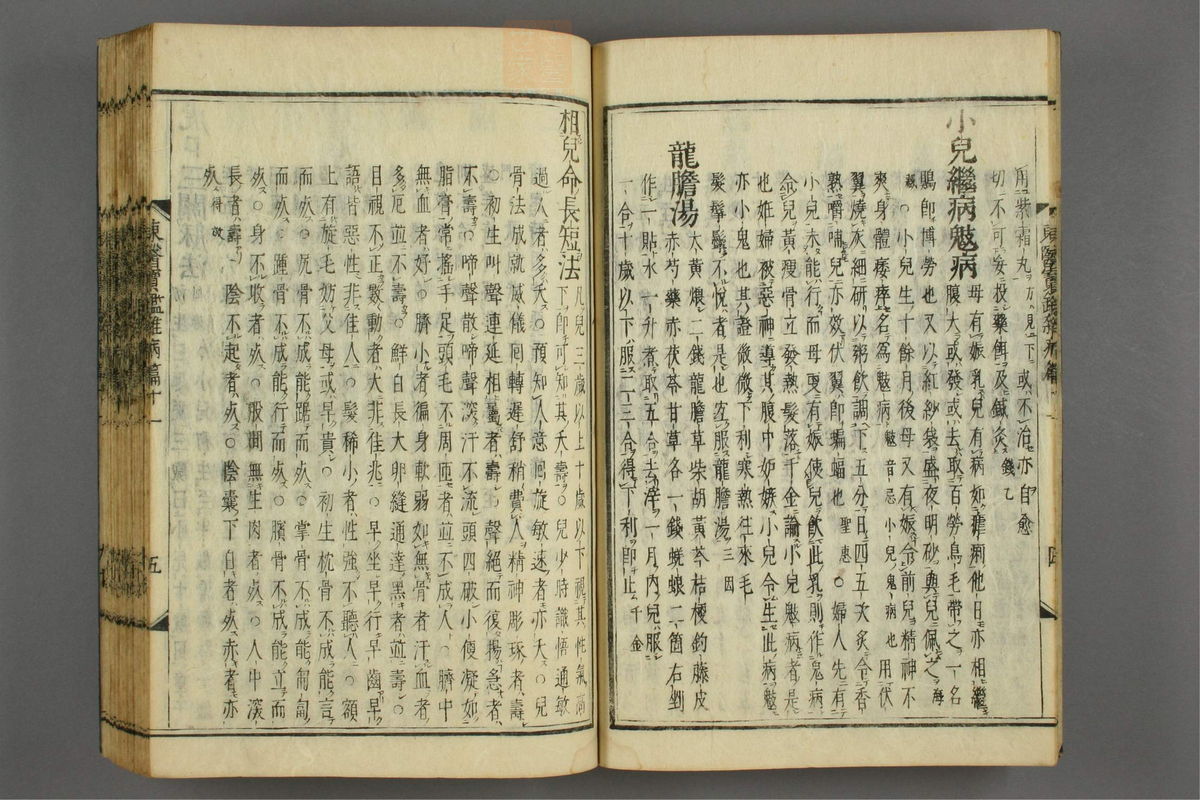 用紫霜丸方見下或不治亦自愈
切不可妄投藥餌及鍼灸錢乙
小兒繼病魃病
母有娠乳兒有病如瘧痢他日亦相繼
腹大或發或去取百勞鳥毛帶之一名
鵙即博勞也又以紅紗袋盛夜明砂與兒佩之海
藏○小兒生十餘月後母又有娠令前兒精神不
爽身體痿瘁名爲魃病魃音忌小兒鬼病也用伏
翼燒灰細研以粥飮調下五分日四五次炙令香
熟嚼哺兒亦效伏翼即蝙蝠也聖惠○婦人先有
小兒未能行而母更有娠使兒飮此乳則作鬼病
令兒黃瘦骨立發熱髮落千金論小兒魃病者是
也姙婦被惡神導其腹中妬嫉小兒令生此病魃
亦小鬼也其證微微下利寒熱往來毛
髮鬇鬡不悅者是也宜服龍膽湯三因
龍膽湯
大黃煨二錢龍膽草柴胡黃芩桔梗鉤藤皮
赤芍藥赤茯苓甘草各一錢蜣蜋二箇右剉
作二貼水一升煮取五合去滓一月內兒服
一合十歲以下服二三合得下利即止千金
東醫寶鑑雜病篇十一 四
相兒命長短法
凡兒三歲以上十歲以下視其性氣高
下即可知其夭壽○兒少時識悟通敏
過人者多夭○預知人意回旋敏速者亦夭○兒
骨法成就威儀回轉遲舒稍費人精神彫琢者壽
○初生叫聲連延相屬者壽○聲絕而復揚急者
不壽○啼聲散啼聲深汗不流頭四破小便凝如
脂膏常搖手足頭毛不周匝者並不成人○臍中
無血者好○臍小者徧身軟弱如無骨者汗血者
多厄並不壽○鮮白長大卵縫通達黑者並壽○
目視不正數動者大非佳兆○早坐早行早齒早
語皆惡性非佳人○髮稀少者性強不聽人○額
上有旋毛妨父母或早貴○初生枕骨不成能言
而死○尻骨不成能踞而死○掌骨不成能匍匐
而死○踵骨不成能行而死○臏骨不成能立而
死○身不收者死○股間無生肉者死○人中深
長者壽○陰不起者死○陰囊下白者死赤者亦
死得效
東醫寶鑑雜病篇十一 五